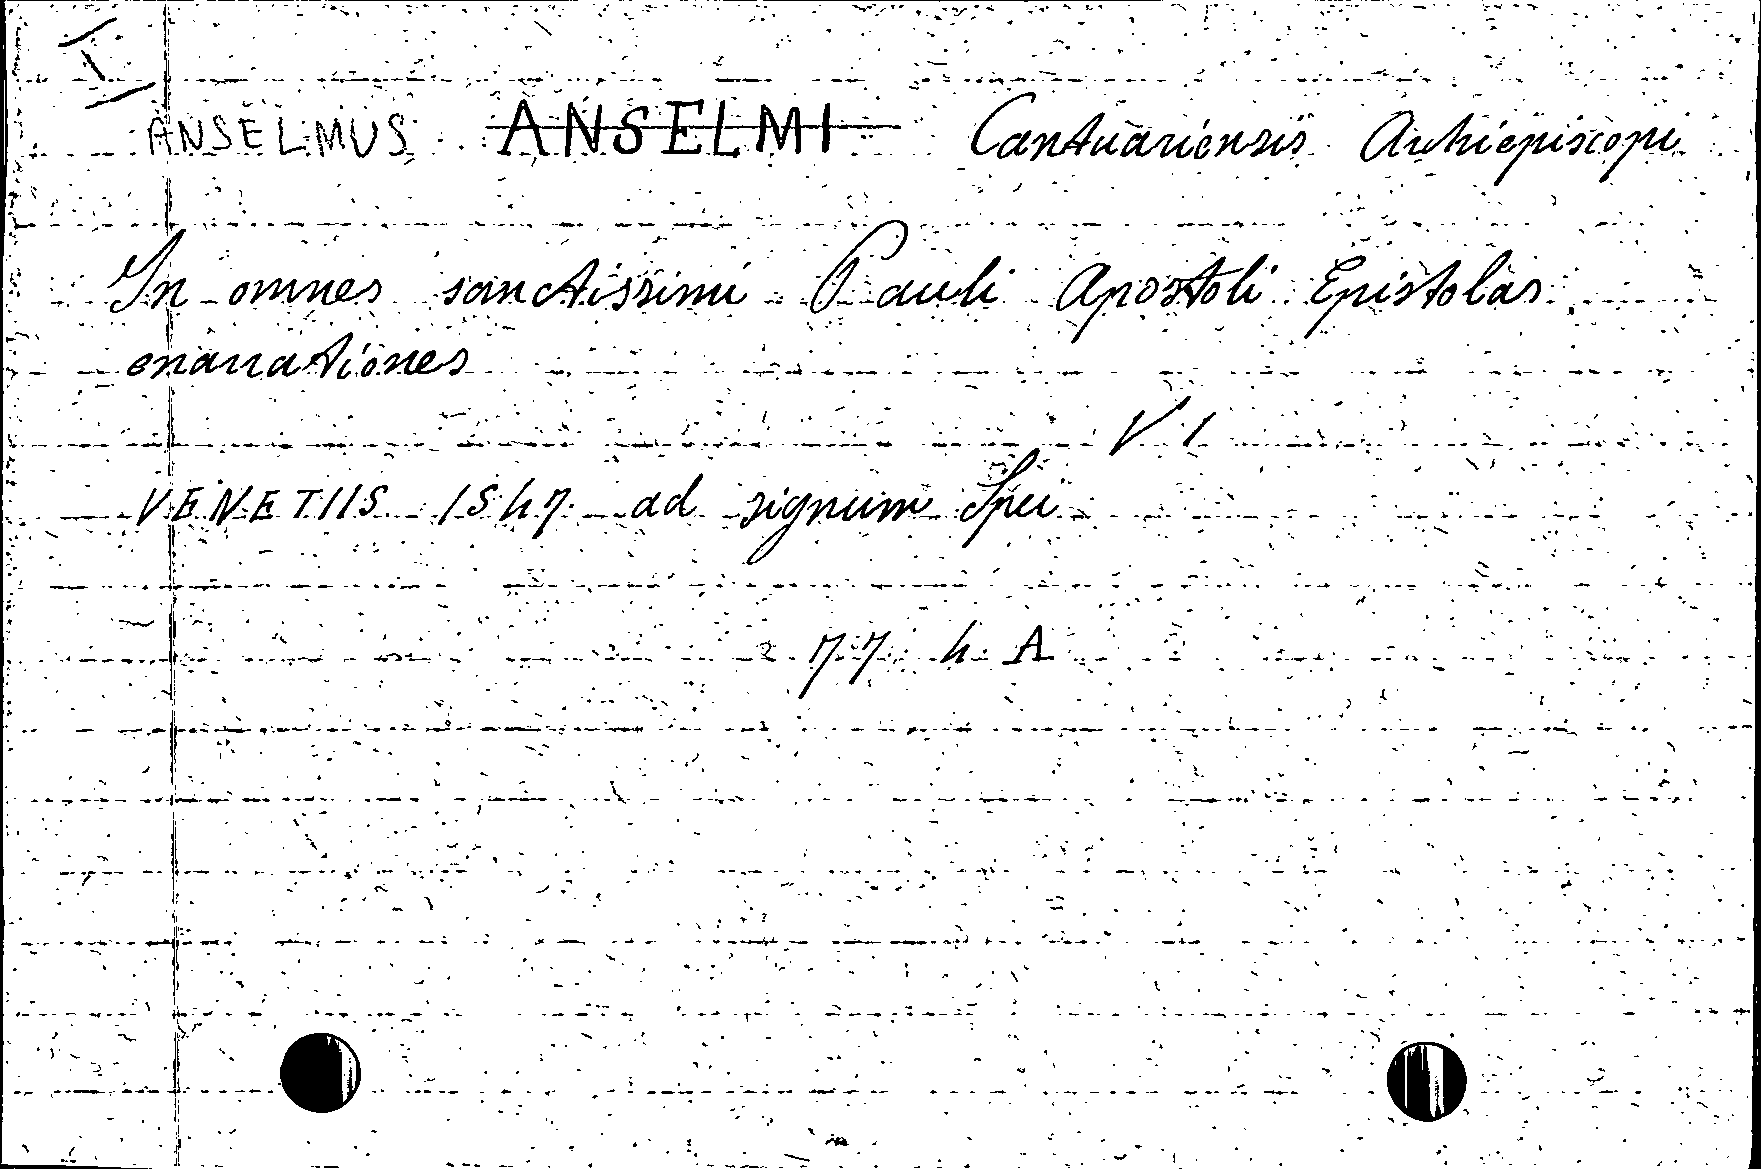 I
ANSELMUS ANSELMI Cantuariensis Archiepiscopi
In omnes sanctissimi Pauli Apostoli Epistolas
enarrationes
V 1
VENETIIS 1547 ad signum Spei
77 4 A